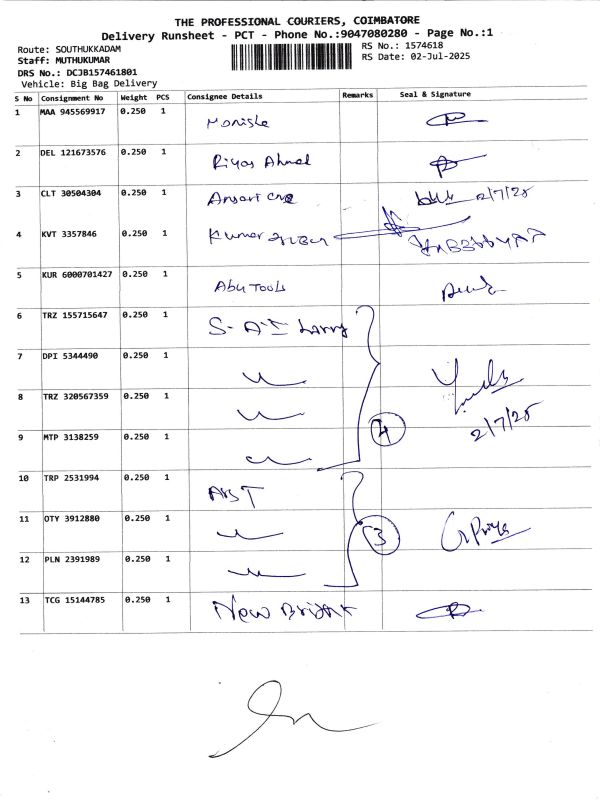 THE PROFESSIONAL COURIERS, COIMBATORE
Delivery Runsheet - PCT - Phone No.:9047080280 - Page No.:1
Route: SOUTHUKKADAM
RS No.: 1574618
Staff: MUTHUKUMAR
RS Date: 02-Jul-2025
DRS No.: DCJB157461801
Vehicle: Big Bag Delivery
S No Consignment No Weight PCS Consignee Details Remarks Seal & Signature
1 MAA 945569917 0.250 1 Monisha
2 DEL 121673576 0.250 1 Riyas Ahmed
3 CLT 30504304 0.250 1 Ansari 2/7/25
4 KVT 3357846 0.250 1 Kumar
5 KUR 6000701427 0.250 1 Abu Tools
6 TRZ 155715647 0.250 1 S-A-I Larry
7 DPI 5344490 0.250 1
8 TRZ 320567359 0.250 1
9 MTP 3138259 0.250 1 4 2/7/25
10 TRP 2531994 0.250 1
11 OTY 3912880 0.250 1 3 G Priya
12 PLN 2391989 0.250 1
13 TCG 15144785 0.250 1 New Bright